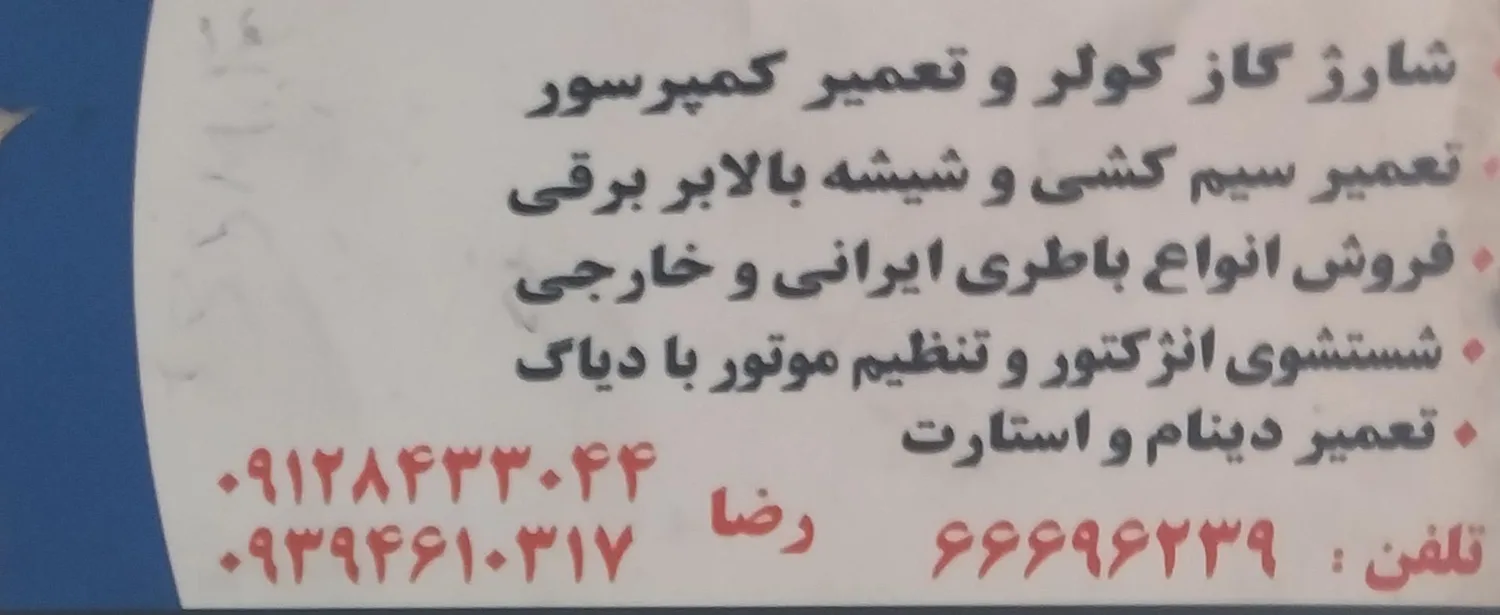 شارژ گاز کولر و تعمیر کمپرسور
تعمیر سیم کشی و شیشه بالابر برقی
فروش انواع باطری ایرانی و خارجی
شستشوی انژکتور و تنظیم موتور با دیاگ
تعمیر دینام و استارت
تلفن : ۶۶۶۹۶۲۳۹
رضا
۰۹۱۲۸۴۳۳۰۴۴
۰۹۳۹۴۶۱۰۳۱۷